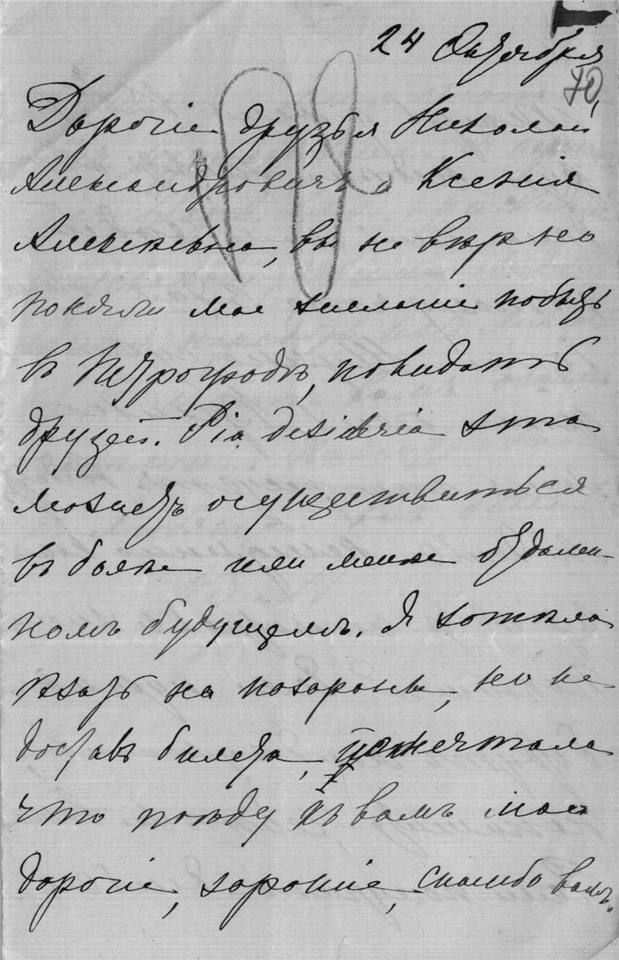 24 Октября
70
Дорогіе друзья Николай
Александровичъ и Ксенія
Алексѣевна, вы не вѣрно
поняли мое желаніе побыть
въ Петроградѣ, повидать
друзей. Pia desideria эта
можетъ осуществиться
въ болѣе или менѣе отдален-
номъ будущемъ. Я хотѣла
ѣхать на похороны, но не
доставъ билета, помечтала
что поѣду къ вамъ мои
дорогіе, хорошіе, спасибо вамъ.